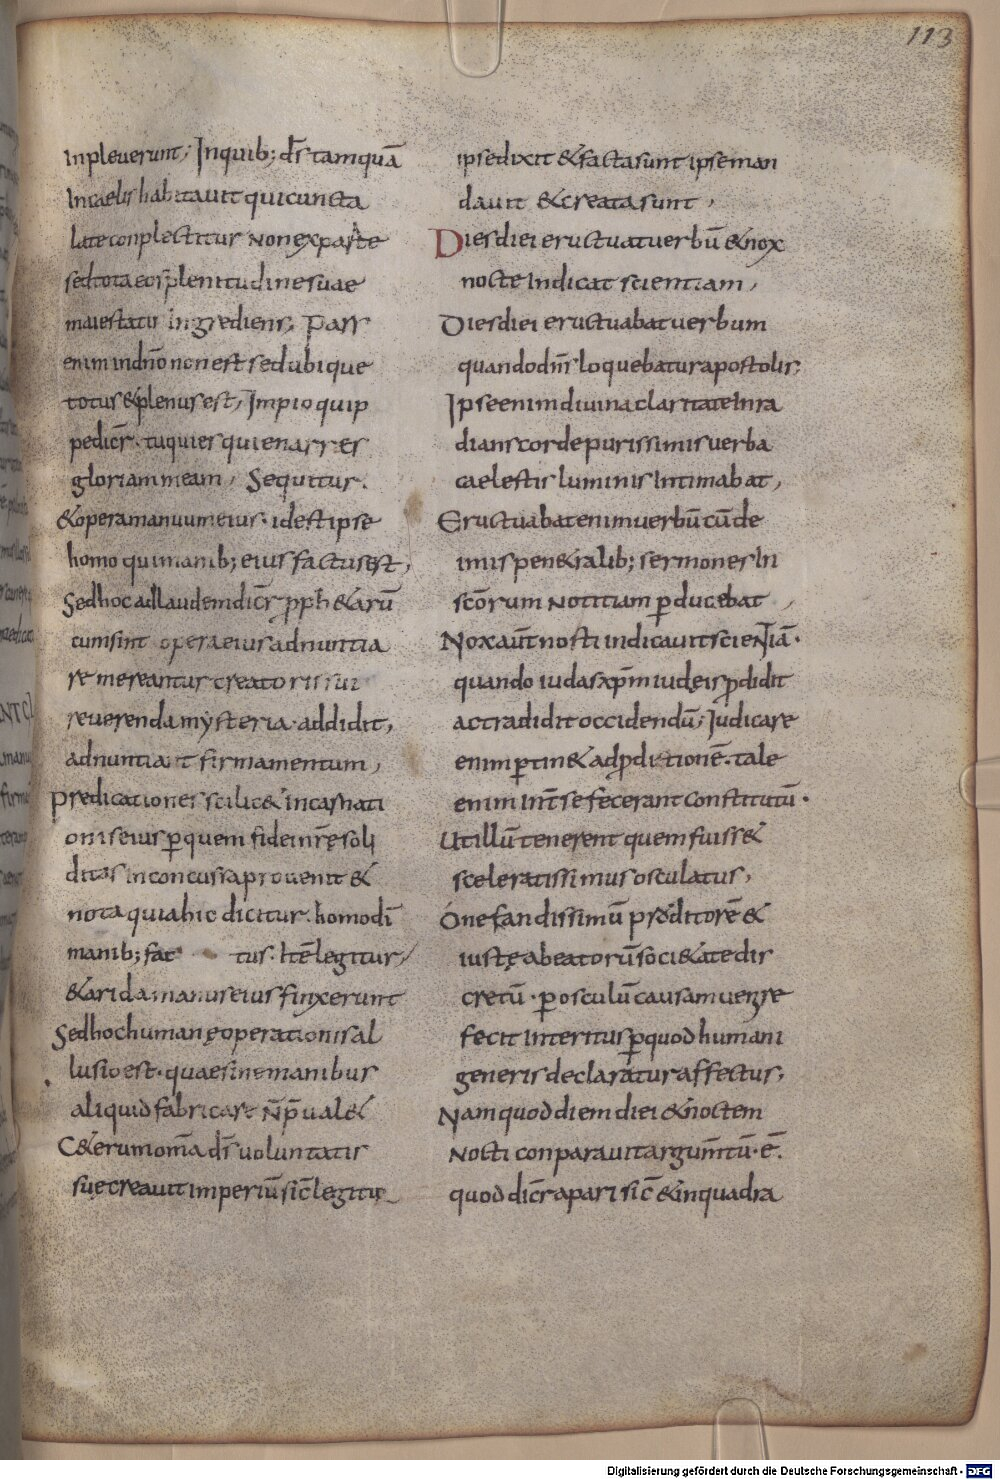 113
inpleverunt; Inquib; d̄s tamquā
Incaelis habitavit quicuncta
late conplectitur Non ex parte
sed tota eor plenitudine suae
maiestatis ingrediens, Pars
enim indn̄o non est sed ubique
totus &plenus est, Impio quip
pe dicr̄. tuquies quienarres
gloriam meam, Sequitur.
&opera manuum eius. id est ipse
homo qui manib; eius factus est,
Sed hoc ad laudem dicr̄ pph̄ &arū
cum sint opera eius adnuntia
re mereantur creatoris sui
reverenda mysteria. addidit,
adnuntiat firmamentum,
predicationes scilic& incarnati
onis eius ꝑ quem fidei nr̄ę soli
ditas inconcussa provenit &
nota quia hic dicitur. homo dī
manib; factus. Itē legitur,
&arida manus eius finxerunt
Sed hoc humanę operationis al
lusio est. quae sine manibus
aliquid fabricare n̄ p̄ual&
C&erum om̄a d̄s voluntatis
suę creavit imperiū sic̄ legitur
ipse dixit &facta sunt ipse man
davit &creata sunt,
Dies diei eructuat verbū &nox
nocte Indicat scientiam,
Dies diei eructuabat verbum
quando dn̄s loquebatur apostolis;
Ipse enim divina claritate Inra
dians corde purissimis verba
caelestis luminis Intimabat,
Eructuabat enim verbū cū de
imis pen&ralib; sermones In
scōrum Notitiam ꝑducebat,
Nox aūt nocti indicavit scientiā.
quando iudas xp̄m iudęis prodidit
ac tradidit occidendū; Iudicare
enim ꝑtin& ad ꝑditionē. tale
enim int̄ se fecerant constitutū.
Ut illū tenerent quem fuiss&
sceleratissimus osculatus,
O nefandissimū proditorē &
iustę a beatorū soci&ate dis
cretū. ꝑ osculū causam venire
fecit interitus ꝑ quod humani
generis declaratur affectus;
Nam quod diem diei &noctem
Nocti conparavit argum̄tū. ē.
quod dicr̄ apari sic̄ &inquadra
Digitalisierung gefördert durch die Deutsche Forschungsgemeinschaft - DFG